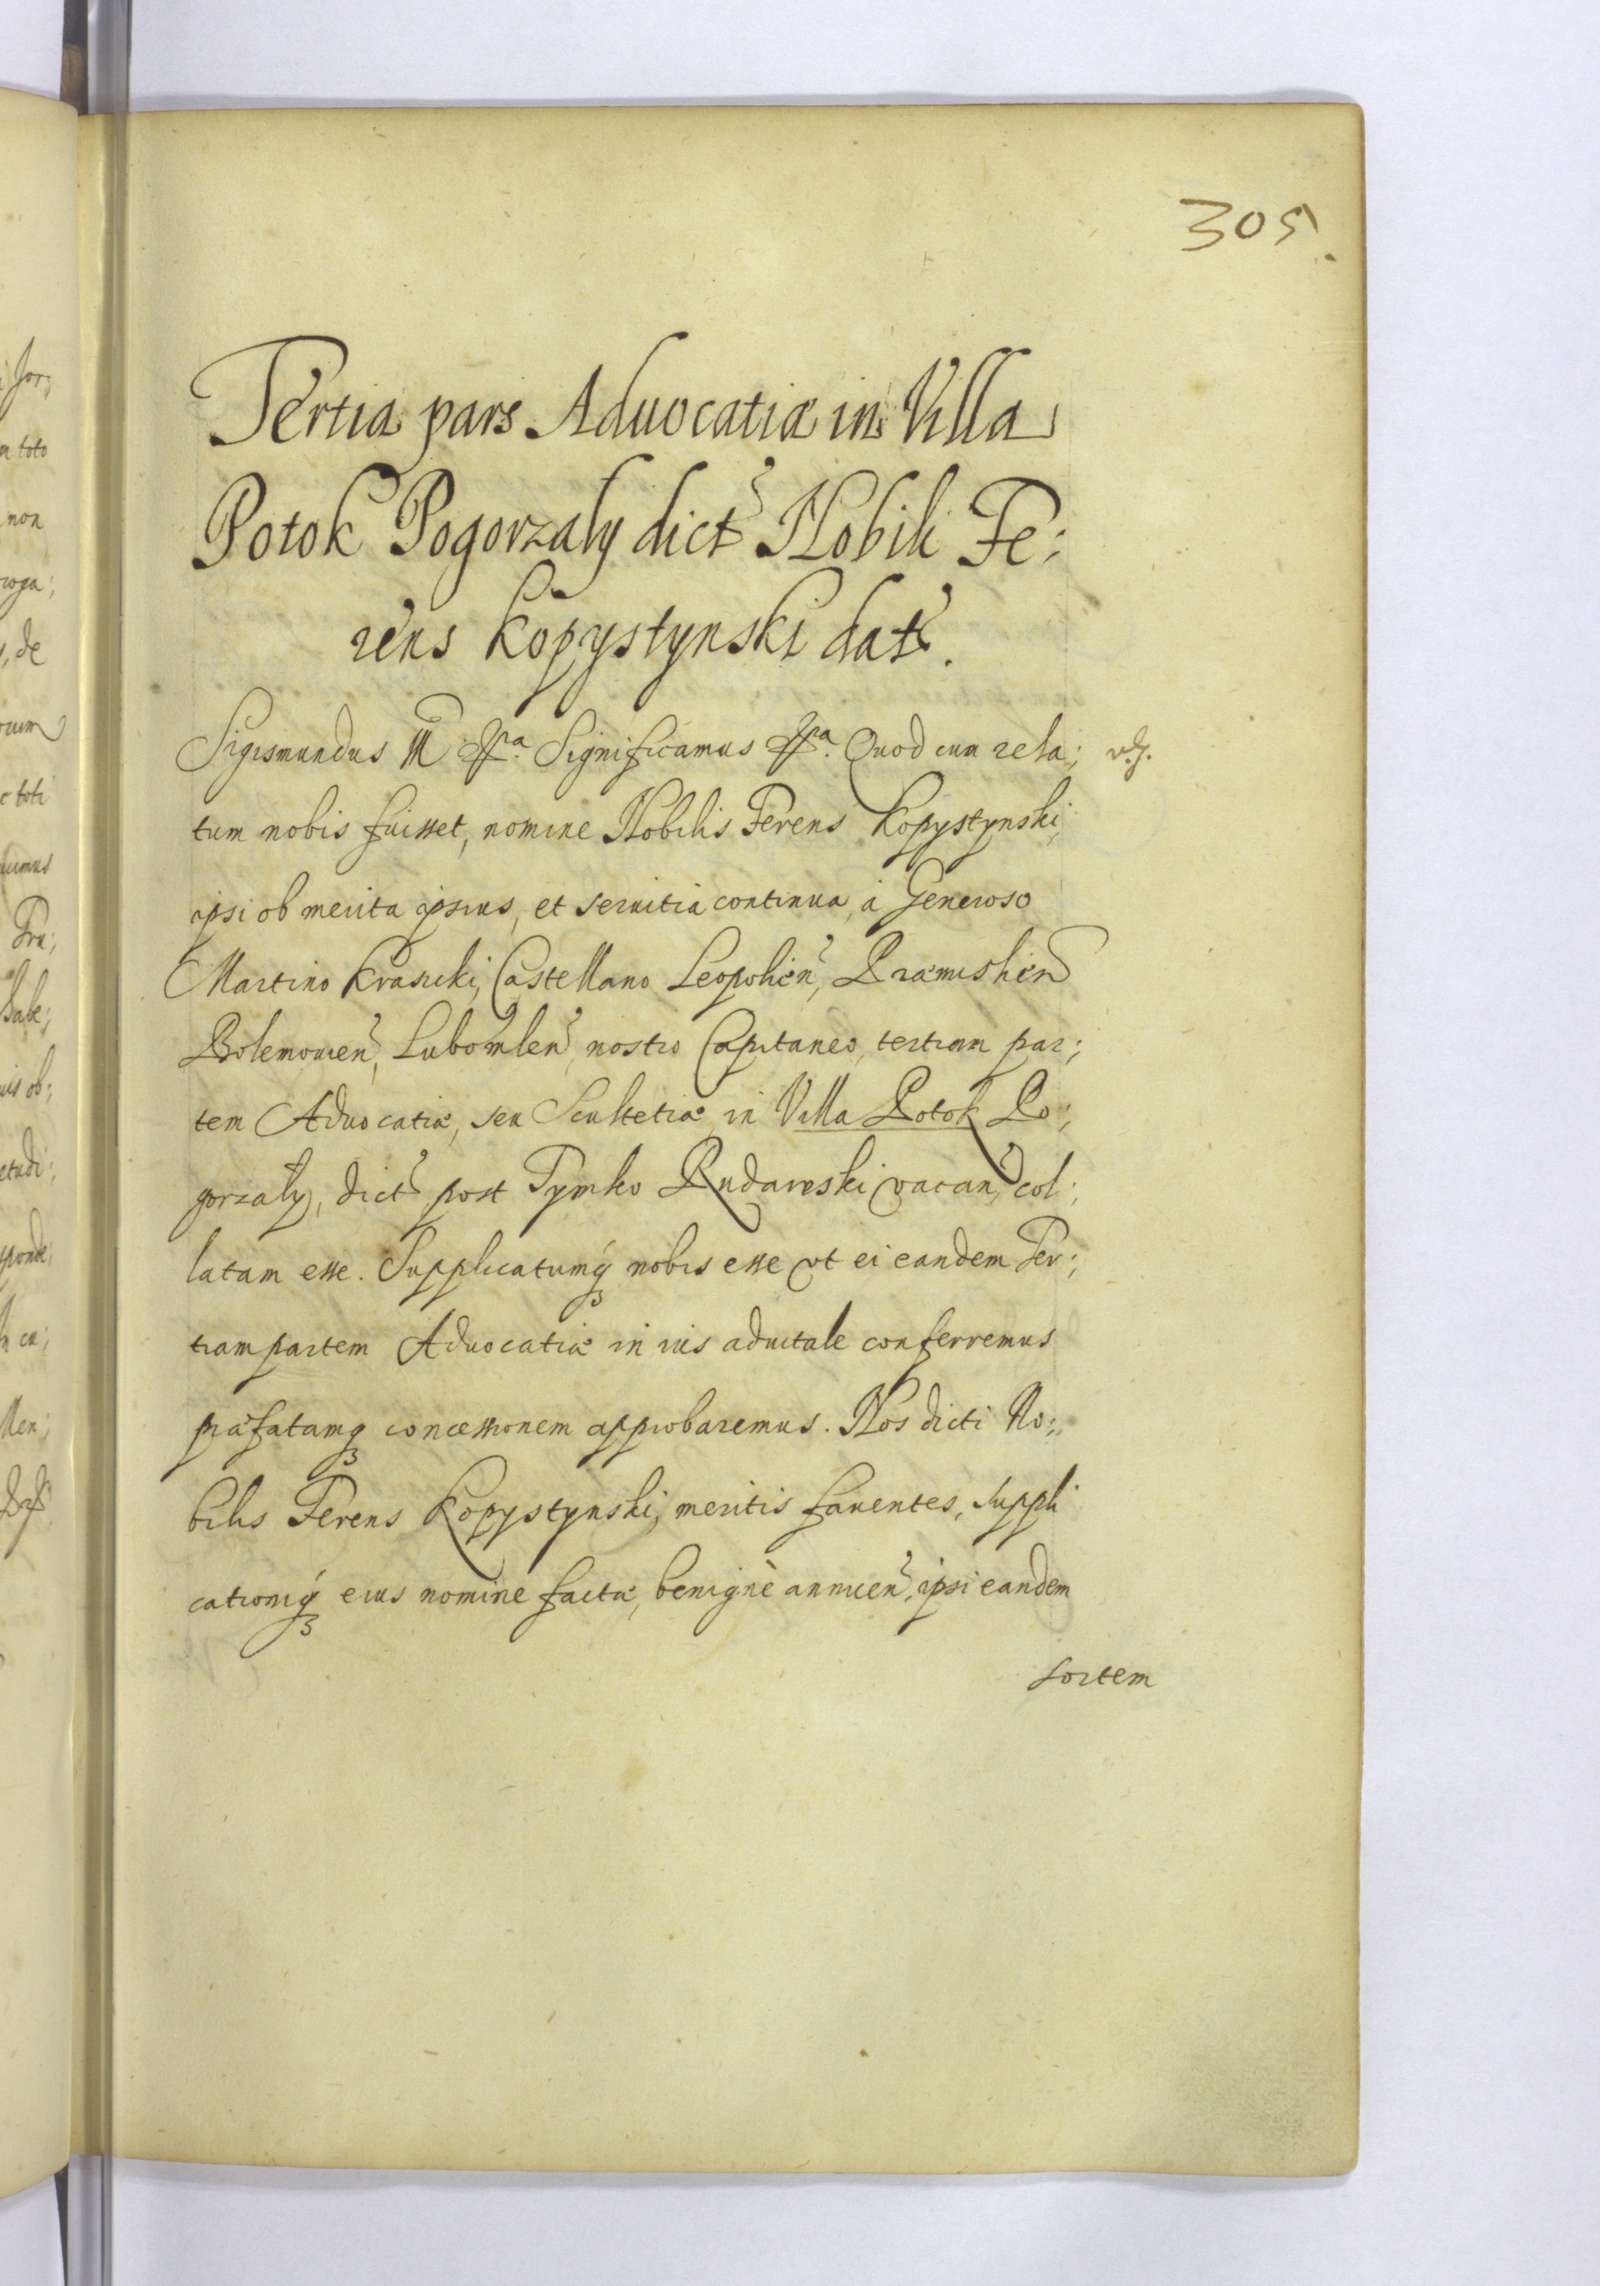 305.
Tertia pars Aduocatiæ in Villa
Potok Pogorzaly dict Nobili Fe;
rens Kopystynski dat.
Sigismundus III Significamus Quod cum rela;
tum nobis fuisset, nomine Nobilis Ferens Kopystynski,
ipsi ob merita ipsius, et seruitia continua, à Generoso
Martino Krasicki, Castellano Leopolien, Præmislien
Bolemouien, Lubomlen, nostro Capitaneo, tertiam par;
tem Aduocatiæ, seu Scultetiæ in Villa Potok Po;
gorzaly, dict post Tymko Rudaweski vacan, col;
latam esse. Supplicatumq nobis esse vt ei eandem Ter;
tiam partem Aduocatiæ in ius aduitale conferremus
præfatamq concessionem approbaremus. Nos dicti No;
bilis Ferens Kopystynski, meritis fauentes, suppli
cationiq eius nomine factæ, benignè annuen, ipsi eandem
sortem